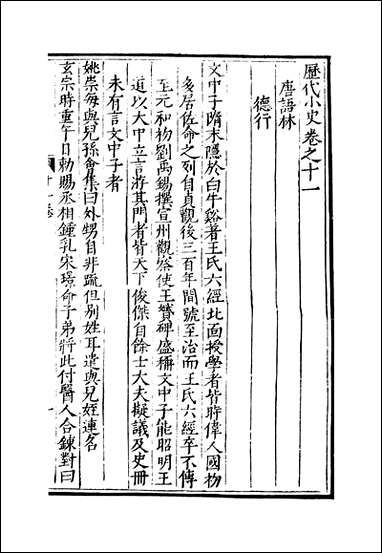 歷代小史卷之十一
唐語林
德行
文中子隋末隱於白牛谿著王氏六經北面授學者皆時偉人國初
多居佐命之列自貞觀後三百年間號至治而王氏六經卒不傳
至元和初劉禹錫撰宣州觀察使王贊碑盛稱文中子能昭明王
道以大中立言游其門者皆天下俊傑自餘士大夫擬議及史冊
未有言文中子者
姚崇每與兒孫會集曰外甥自非疏但別姓耳遣與兒姪連名
玄宗時重午日勑賜丞相鍾乳宋璟命子弟將此付醫人合鍊對曰